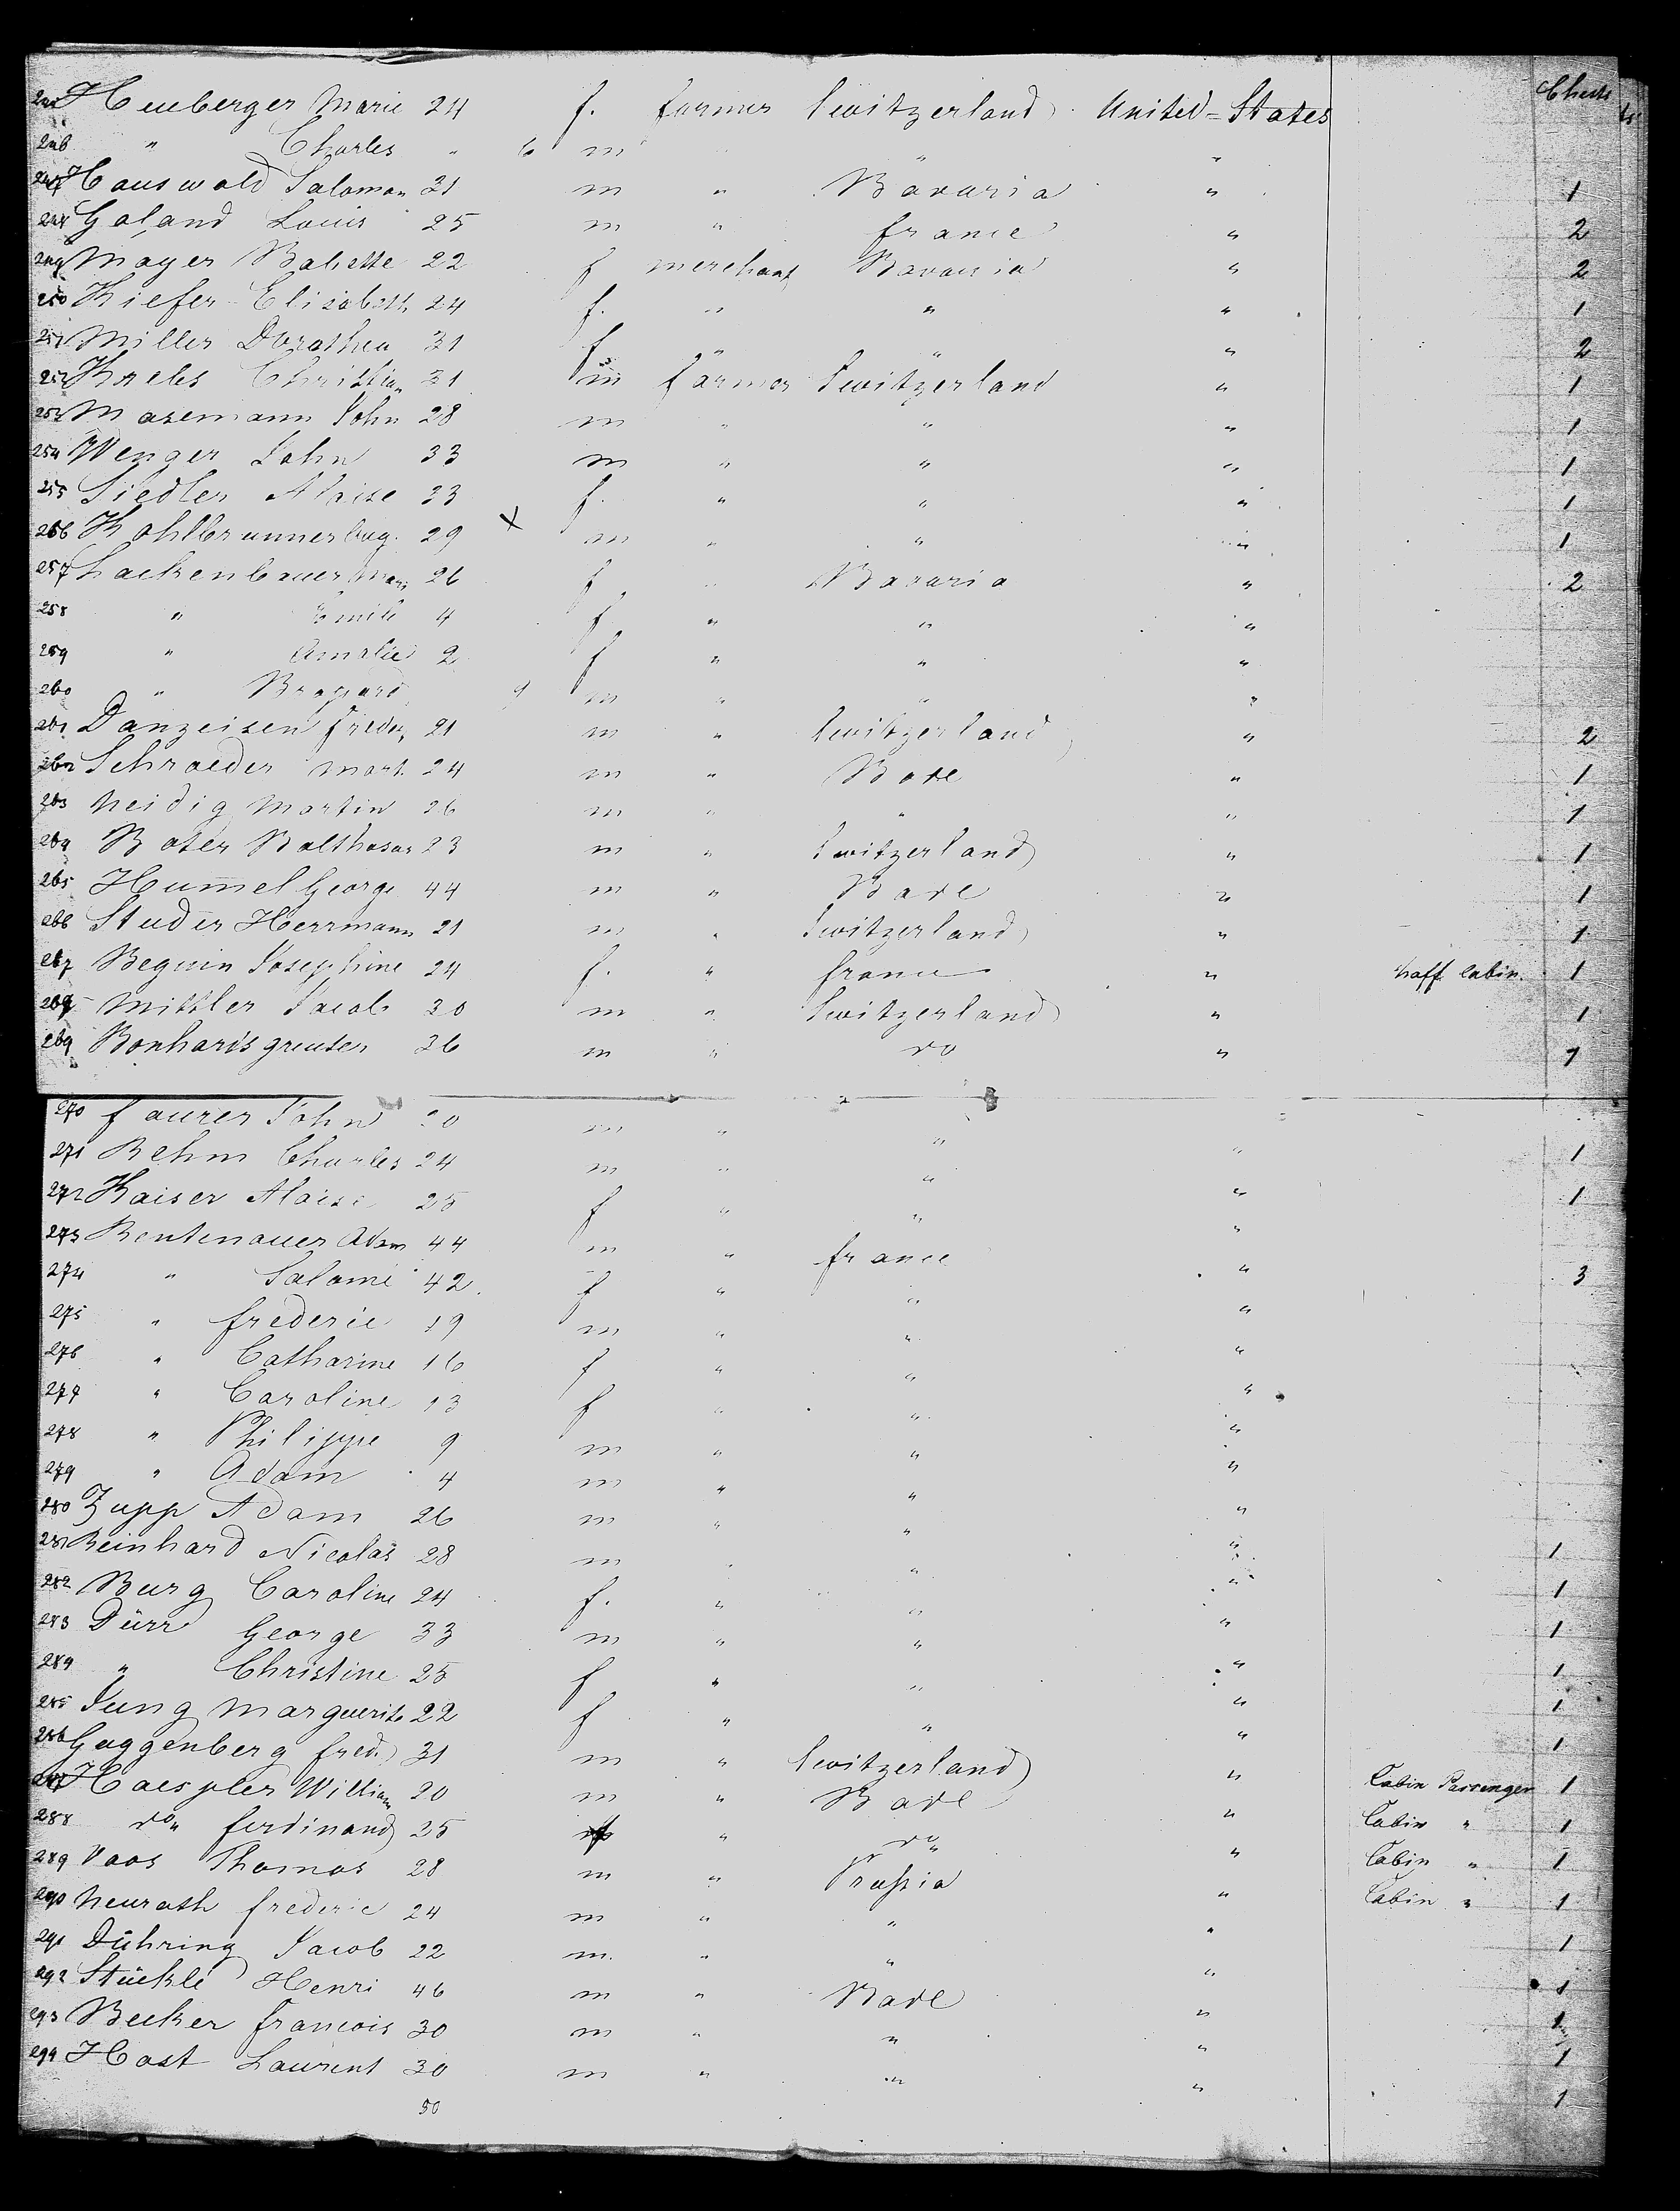 Chests
245 Heuberger Marie 24 f. farmer Switzerland United-States
246 " Charles " 6 m " "
247 Hauswald Salomon 31 m " Bavaria " 1
248 Galand Louis 25 m " france " 2
249 Mayer Babette 22 f merchant Bavaria " 2
250 Kiefer Elisabeth 24 f. " " " 1
251 Miller Dorothea 31 f " " " 2
252 Krebs Christian 31 m farmer Switzerland " 1
253 Masemann John 28 m " " " 1
254 Wenger John 33 m " " " 1
255 Siedler Aloise 23 f. " " " 1
256 Kohlbrunner Aug. 29 X m " " " 1
257 Lackenbauer Mari 26 f " Bavaria " 2
258 " Emili 4 f " " "
259 " Amalie 2 f " " "
260 " 9 m " " "
261 Danzeisen freder 21 m " Switzerland " 2
262 Schroeder Mart. 24 m " Bade " 1
263 Neidig Martin 26 m " " " 1
264 Boser Balthasar 23 m " Switzerland " 1
265 Hummel George 44 m " Bade " 1
266 Studer Herrmann 21 m " Switzerland " 1
267 Beguin Josephine 24 f. " france " haff Cabin. 1
268 Mittler Jacob 30 m " Switzerland " 1
269 Bonhartsgreuter 36 m " do " 1
270 faurer John m " " "
271 Rehm Charles 24 m " " " 1
272 Kaiser Aloise 25 f " " " 1
273 Bentenauer Adam 44 m " france "
274 " Salomé 42. f " " " 3
275 " frederic 19 m " " "
276 " Catharine 16 f " " "
277 " Caroline 13 f " " "
278 " Philippe 9 m " " "
279 " Adam 4 m " " "
280 Zupp Adam 26 m " " "
281 Reinhard Nicolas 28 m " " " 1
282 Burg Caroline 24 f. " " " 1
283 Dürr George 33 m " " " 1
284 " Christine 25 f " " " 1
285 Jung Marguerite 22 f " " " 1
286 Guggenberg fred. 31 m " Switzerland " 1
287 Haespler William 20 m " Bade " Cabin Passenger 1
288 do" ferdinand 25 " do" " Cabin " 1
289 Vaos Thomas 28 m " Prussia " Cabin " 1
290 Neurath frederic 24 m " " " Cabin " 1
291 Dühring Jacob 22 m. " " " 1
292 Stückle Henri 46 m " Bade " 1
293 Becker francois 30 m " " " 1
294 Hast Laurent 30 m " " " 1
50 1